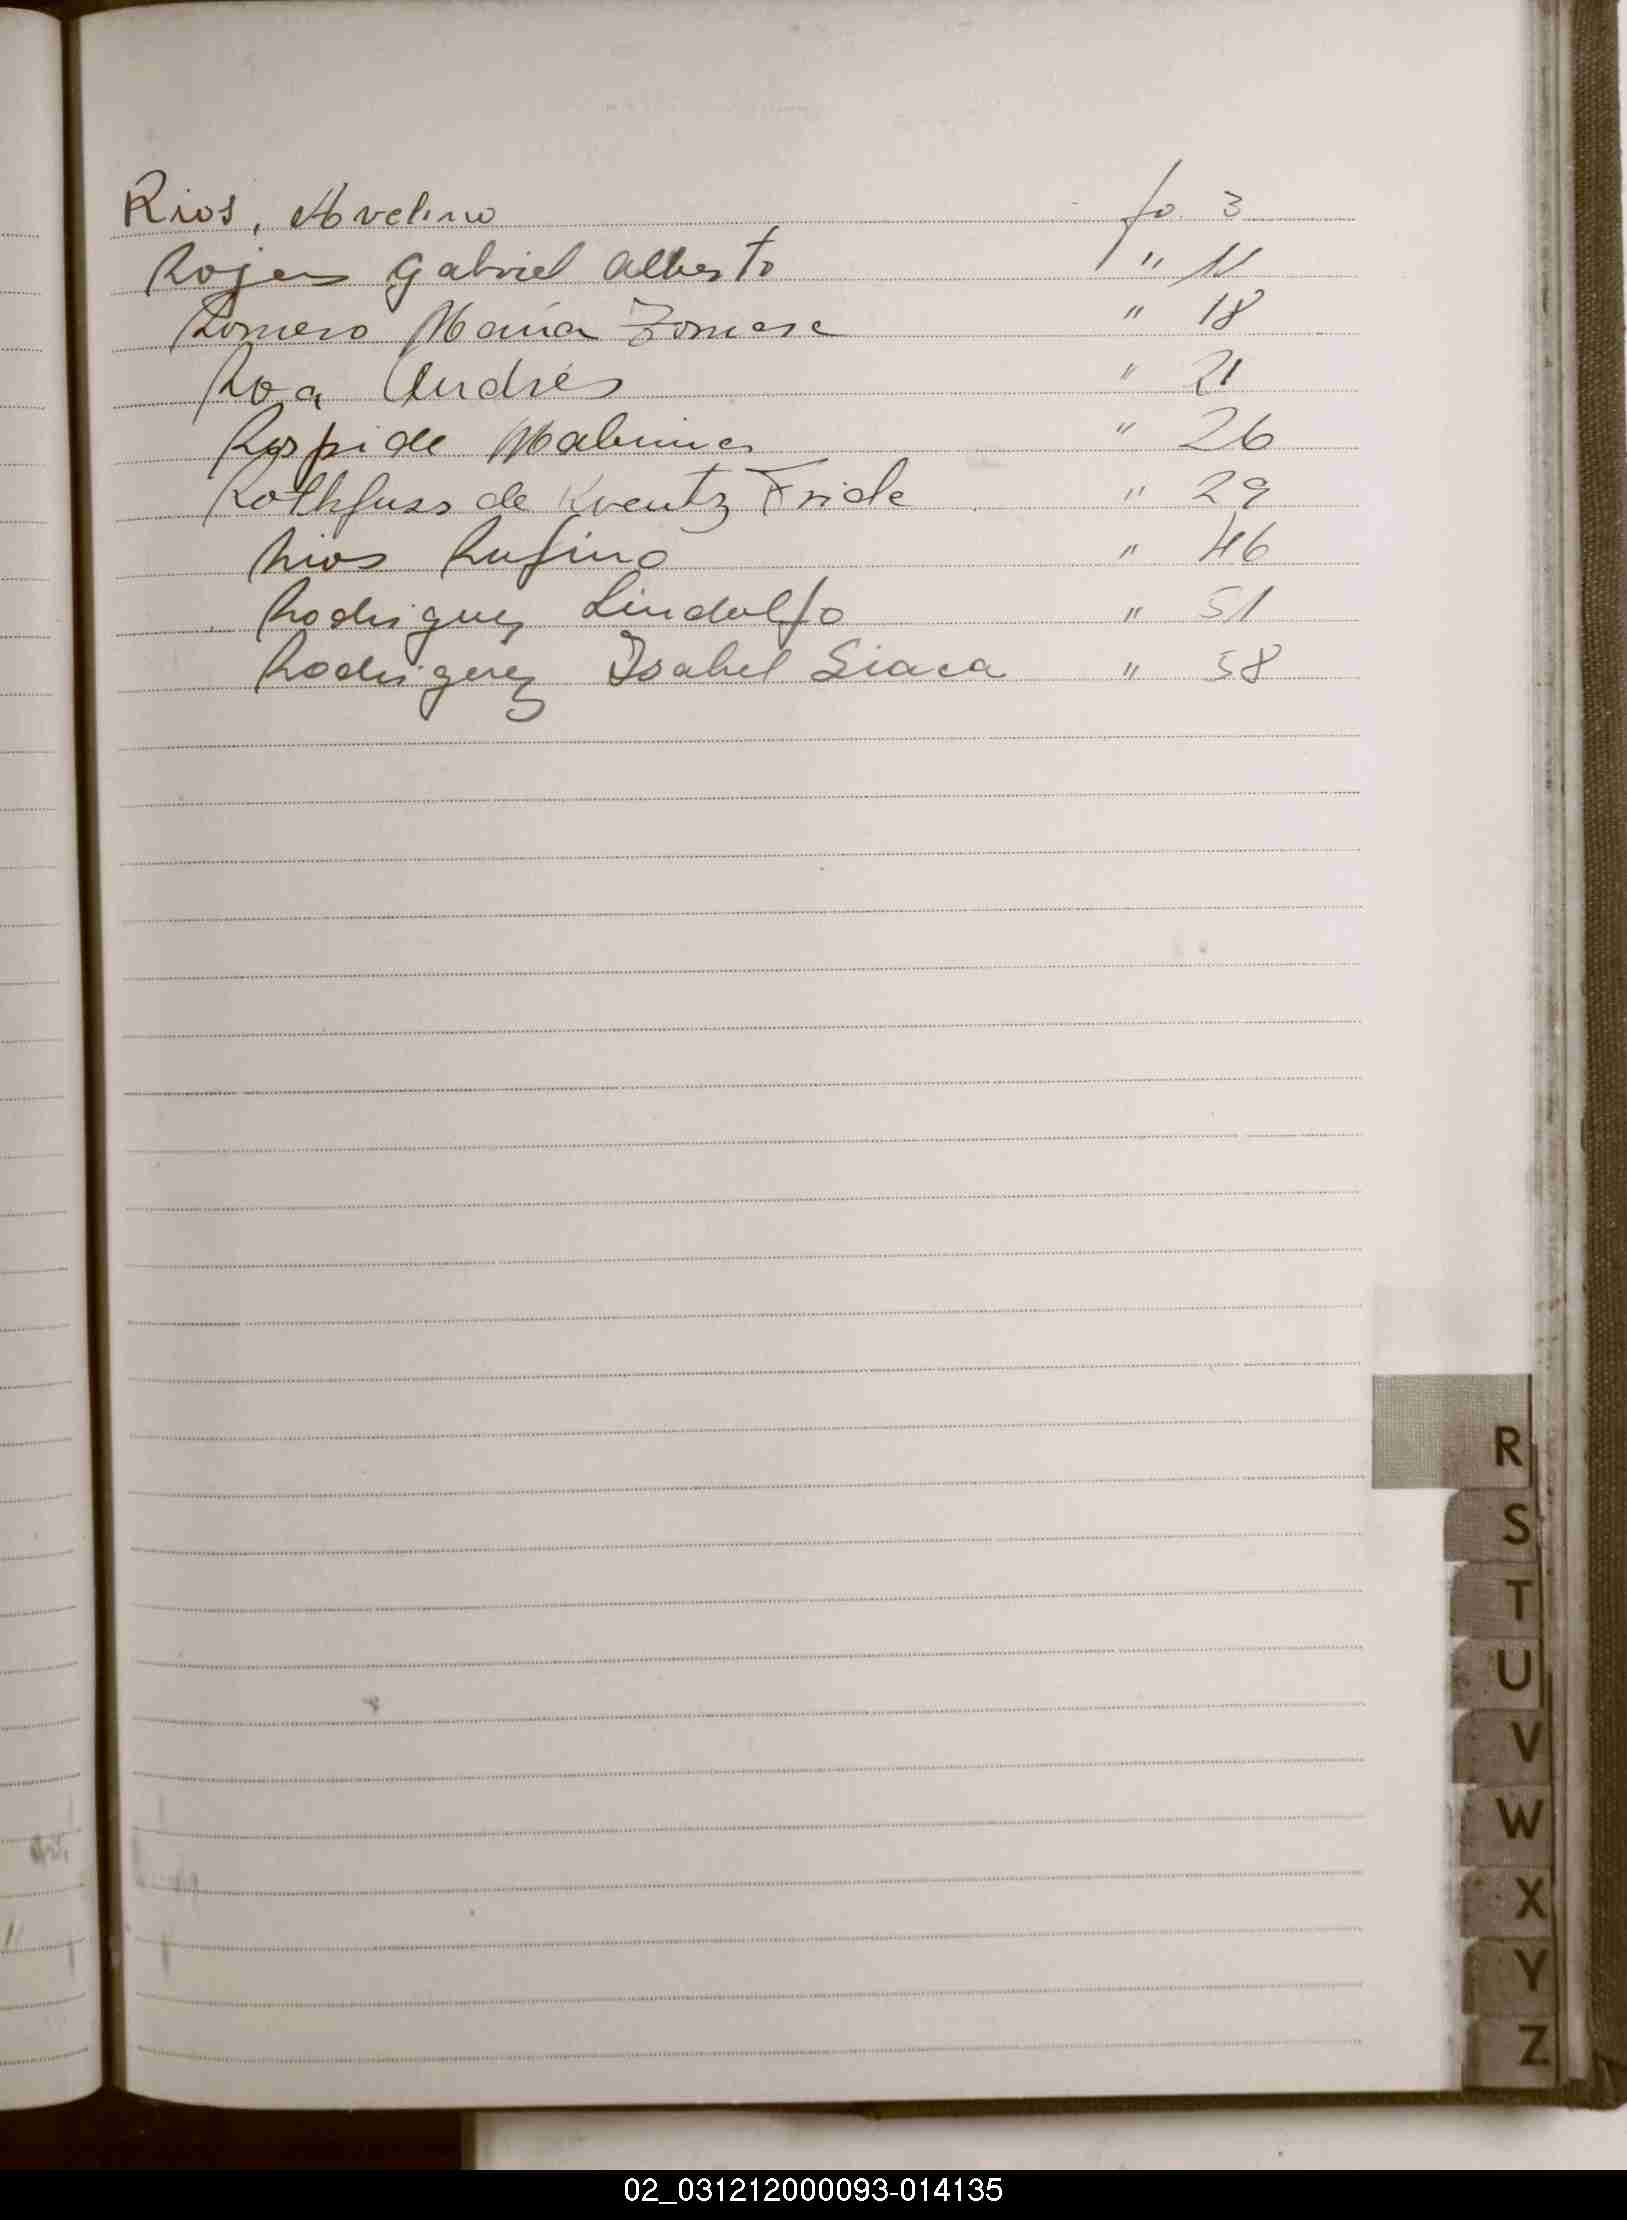 Rios, Avelino fo 3
Rojas Gabriel Alberto " 11
Romero María " 18
Roa Andrés " 21
Raspide " 26
Rothfuss de Kreutz Frida " 29
Rios Rufino " 46
Rodriguez Lindolfo " 51
Rodriguez Isabel Siaca " 58
R
S
T
U
V
W
X
Y
Z
02_031212000093-014135